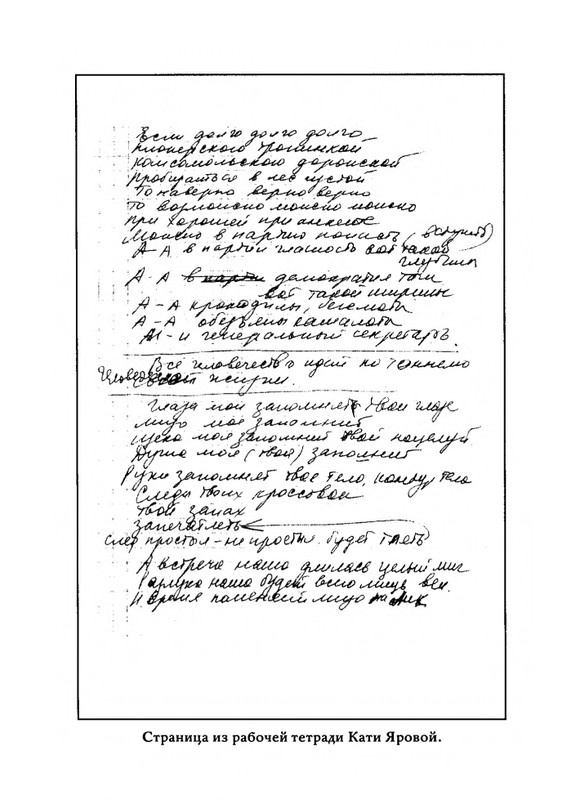 Если долго долго долго
пионерского тропинкой
комсомольскою дорожкой
пробираться в лес густой
То наверно верно верно
то возможно можно можно
при хорошей при анкете
Можно в партию попасть (вступить)
А-А в партии гласность вот такой
глубины
А-А в парти демократия там
вот такой ширины
А-А крокодилы, бегемоты
А-А обезьяны кашалоты
И-и генеральный секретарь.
Все человечество идет по
жизни.
Глаза мои запомнят твои глаза
лицо мое запомнит
щека моя запомнит твой поцелуй
Душа моя (твоя) запомнит
Руки запомнят твое тело, тела
Следы твоих кроссовок
твой запах
запечатлеть
след простыл - не простыл. будет тлеть
А встреча наша длилась целый миг
Разлука наша будет всего лишь век
И время поменяет лицо на лик
Страница из рабочей тетради Кати Яровой.